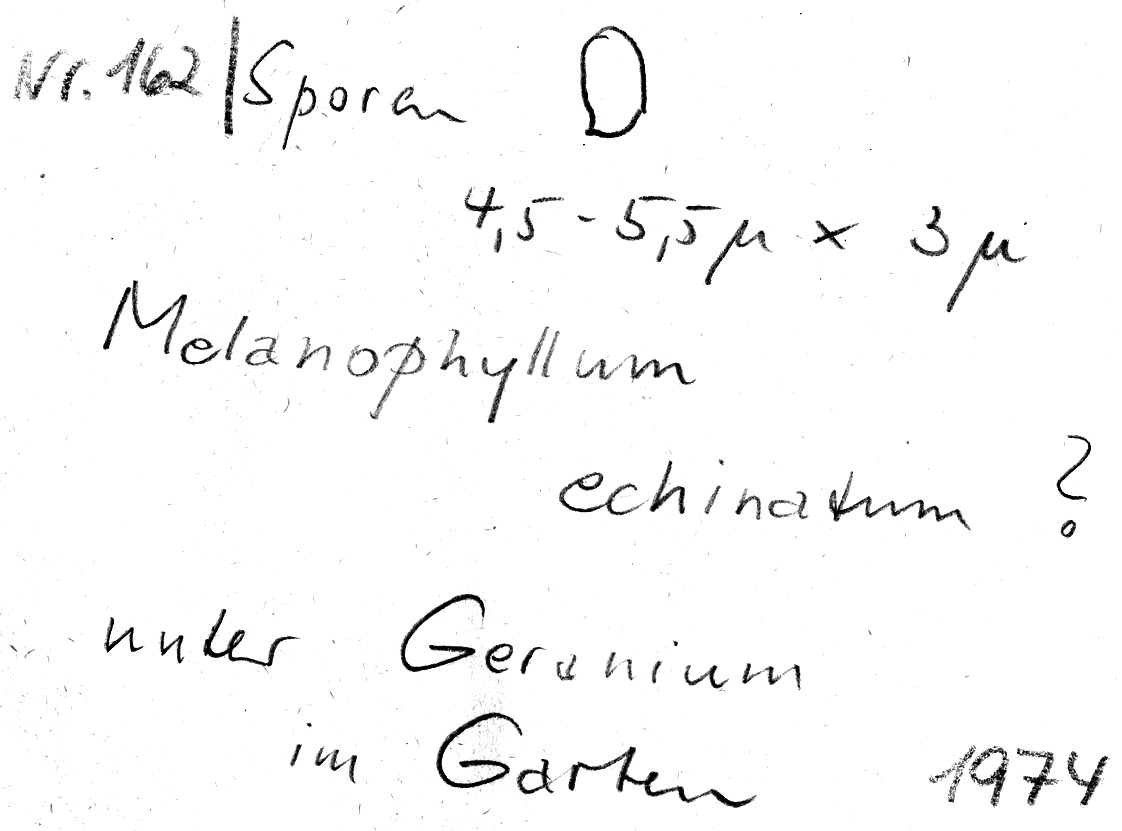 Nr. 162 | Sporen
4,5 - 5,5 µ × 3 µ
Melanophyllum
echinatum ?
unter Geranium
im Garten 1974